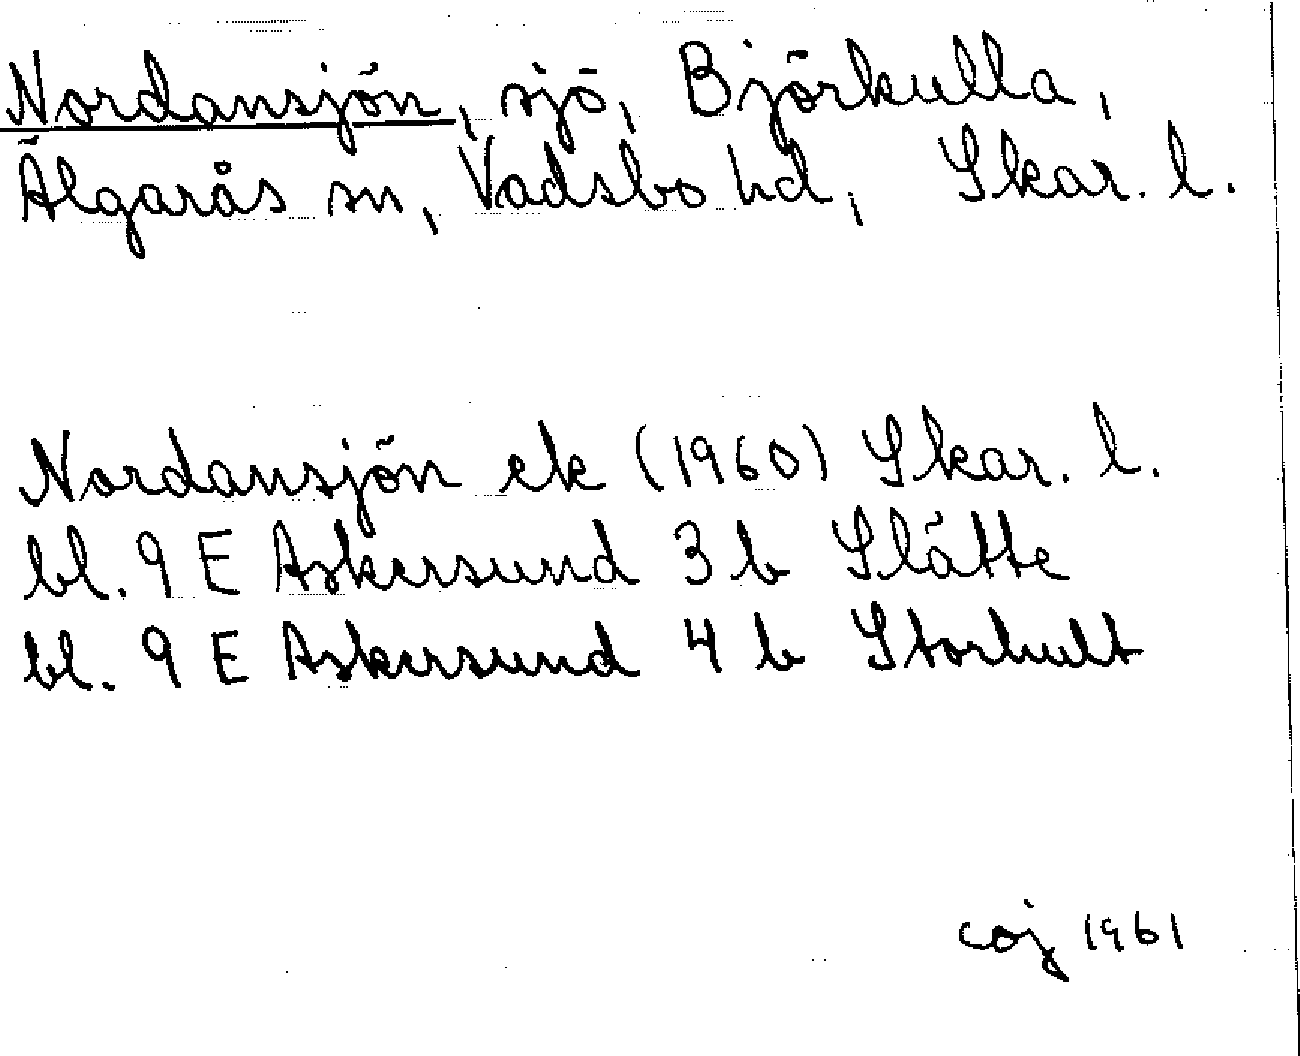 Nordansjön, sjö, Björkulla,
Älgarås sn, Vadsbo hd, Skar. l.
Nordansjön ek (1960) Skar. l.
bl. 9 E Askersund 3 b Slätte
bl. 9 E Askersund 4 b Storhult
coj 1961